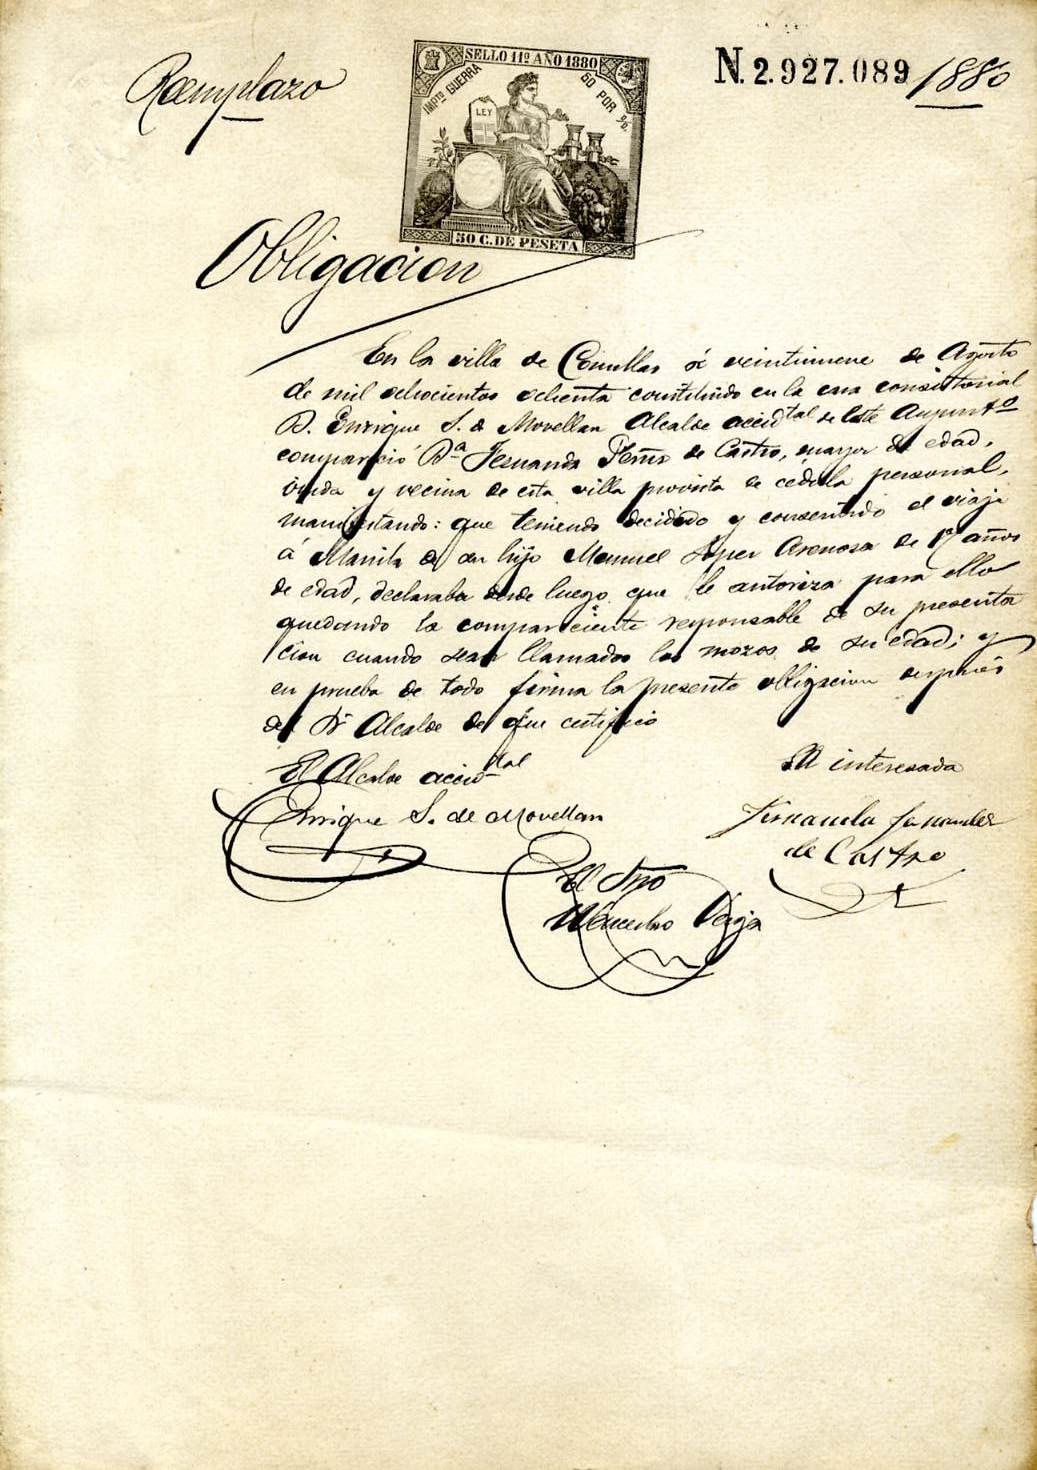 Reemplazo
SELLO 11º AÑO 1880
IMPTO GUERRA
50 POR %
LEY
50 C. DE PESETA
N. 2.927.089
1880
Obligacion
En la villa de Comillas á veintinueve de Agosto
de mil ochocientos ochenta constituido en la casa consistorial
D. Enrique S. de Movellan Alcalde accidtal de este Ayuntto
compareció Dª Fernanda Fernz de Castro, mayor de edad,
viuda y vecina de esta villa provista de cedula personal,
manifestando: que teniendo decidido y consentido el viaje
á Manila de su hijo Manuel Lopez Arenosa de 17 años
de edad, declaraba desde luego que le autoriza para ello
quedando la compareciente responsable de su presenta
cion cuando sean llamados los mozos de su edad; y
en prueba de todo firma la presente obligacion despues
del Sr Alcalde de que certifico
El Alcalde accidtal
La interesada
Enrique S. de Movellan
Fernanda Fernandez
de Castro
El Srio
Vega